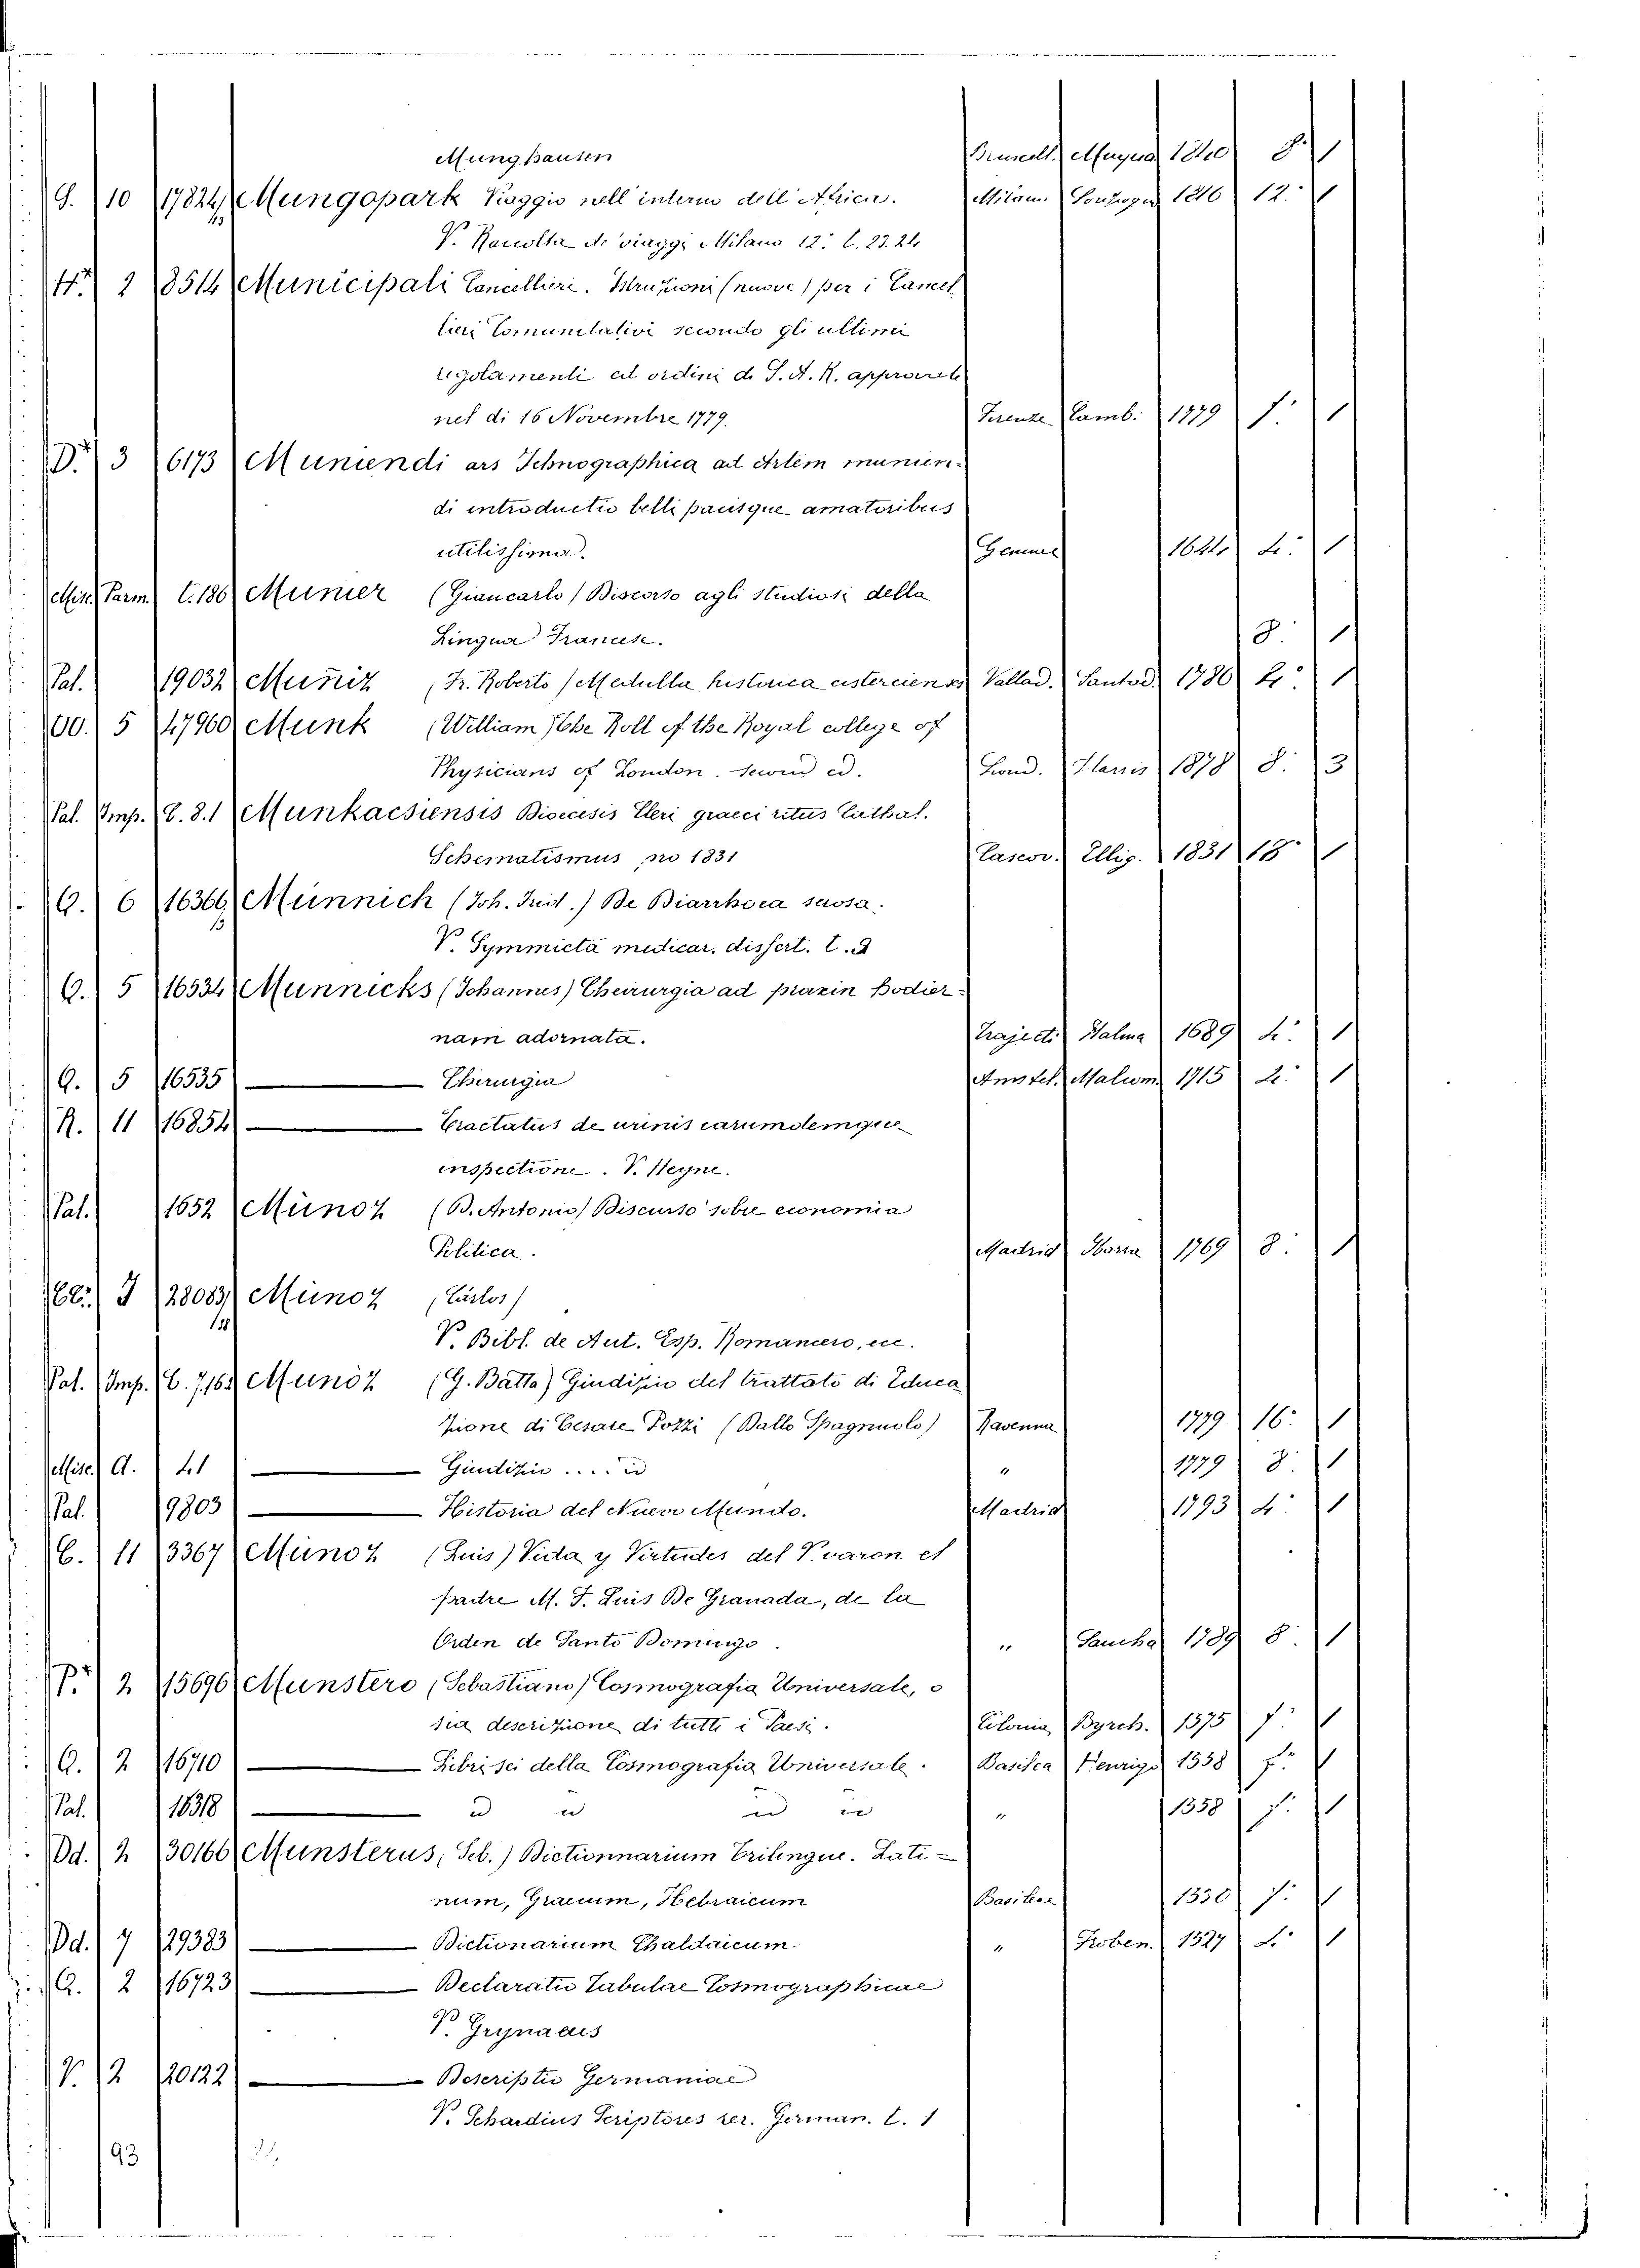 Munghausen Brusell. 1840 8. 1
G. 10 17824/13 Mungopark Viaggio nell'interno dell'Africa. Milano Sonzogno 1816 12. 1
V. Raccolta di viaggi Milano 12. t. 23. 24
H.² 2 8514 Municipali Cancellieri. Istruzioni (nuove) per i Cancel
lieri Comunitativi secondo gli ultimi
regolamenti ed ordini di S. A. R. approvate
nel di 16 Novembre 1779. Firenze Camb. 1779 f. 1
D.² 3 6173 Muniendi ars Ichnographica ad Artem munien-
di introductio belli pacisque amatoribus
utilissima. 4. 1
Misc. Parm. t.186 Munier (Giancarlo) Discorso agli studiosi della
Lingua Francese. 8. 1
Pal. 19032 Muñiz (Fr. Roberto) Medulla historica cisterciense Vallad. Santad. 1786 4. 1
OO. 5 47960 Munk (William) The Roll of the Royal college of
Physicians of London. second ed. Lond. 1878 8. 3
Pal. Imp. C. 8. 1 Munkacsiensis Dioecesis Cleri graeci ritus Cathol.
Schematismus pro 1831 Cascov. Ellig. 1831 18 1
Q. 6 16366/13 Münnich (Joh. Frid.) De Diarrhoea serosa.
V. Symmicta medicar. dissert. t. 2
Q. 5 16534 Munnicks (Johannes) Cheirurgia ad praxin hodier-
nam adornata. Trajecti Halma 1689 4. 1
Q. 5 16535 ——— Chirurgia Amstel. 1715 4. 1
R. 11 16854 ——— Tractatus de urinis earumdemque
inspectione. V. Heyne.
Pal. 1652 Münoz (D. Antonio) Discurso sobre economia
Politica. Madrid Ibarra 1769 8. 1
I 28083/18 Münoz (Carlos)
V. Bibl. de Aut. Esp. Romancero, ecc.
Pal. Imp. C. 7.163 Munöz (G. Batta) Giudizio del trattato di Educa
zione di Cesare Pozzi (Dallo Spagnuolo) Ravenna 1779 16. 1
Misc. A. 41 ——— Giudizio .... id " 1779 8. 1
Pal. 9803 ——— Historia del Nuevo Mundo. Madrid 1793 4. 1
C. 11 3367 Münoz (Luis) Vida y Virtudes del V. varon el
padre M. F. Luis De Granada, de la
Orden de Santo Domingo. " Sancha 1789 8. 1
P.² 2 15696 Munstero (Sebastiano) Cosmografia Universale, o
sia descrizione di tutti i Paesi. Colonia Byrch. 1575 f. 1
Q. 2 16710 ——— Libri sei della Cosmografia Universale. Basilea Henrigo 1558 f. 1
Pal. 18318 ——— id id id id " 1558 f. 1
Dd. 2 30166 Munsterus, Seb.) Dictionnarium Trilingue. Lati-
num, Graecum, Hebraicum Basileae 1530 f. 1
Dd. 7 29383 ——— Dictionarium Chaldaicum " Froben. 1527 4. 1
Q. 2 16723 ——— Declaratio Tabulae Cosmographicae
V. Grynaeus
V. 2 20122 ——— Descriptio Germaniae
V. Schardius Scriptores rer. German. t. 1
93